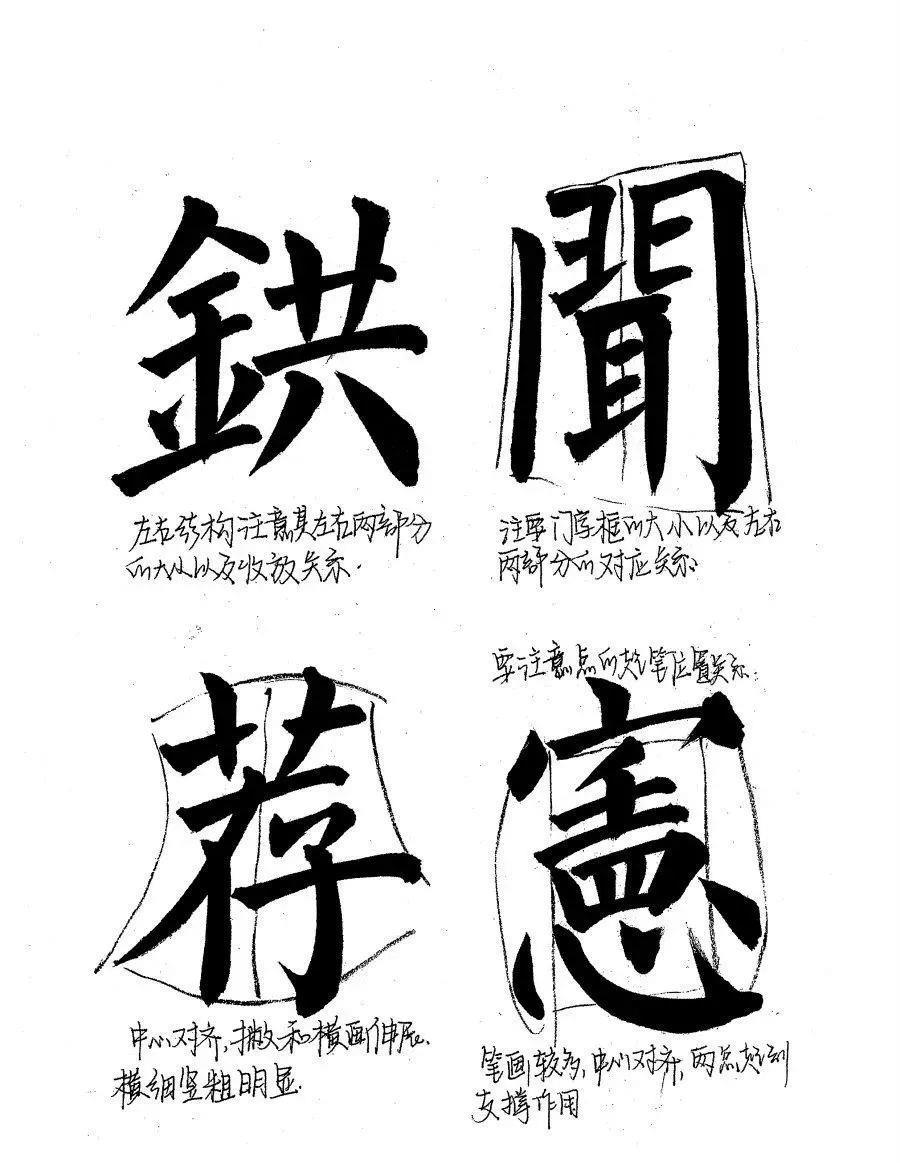 鉷
左右结构注意其左右两部分
的大小以及收放关系.
聞
注意门字框的大小以及左右
两部分的对应关系.
荐
中心对齐,撇和横画伸展.
横细竖粗明显.
要注意点的起笔位置关系.
憲
笔画较多,中心对齐,两点起到
支撑作用